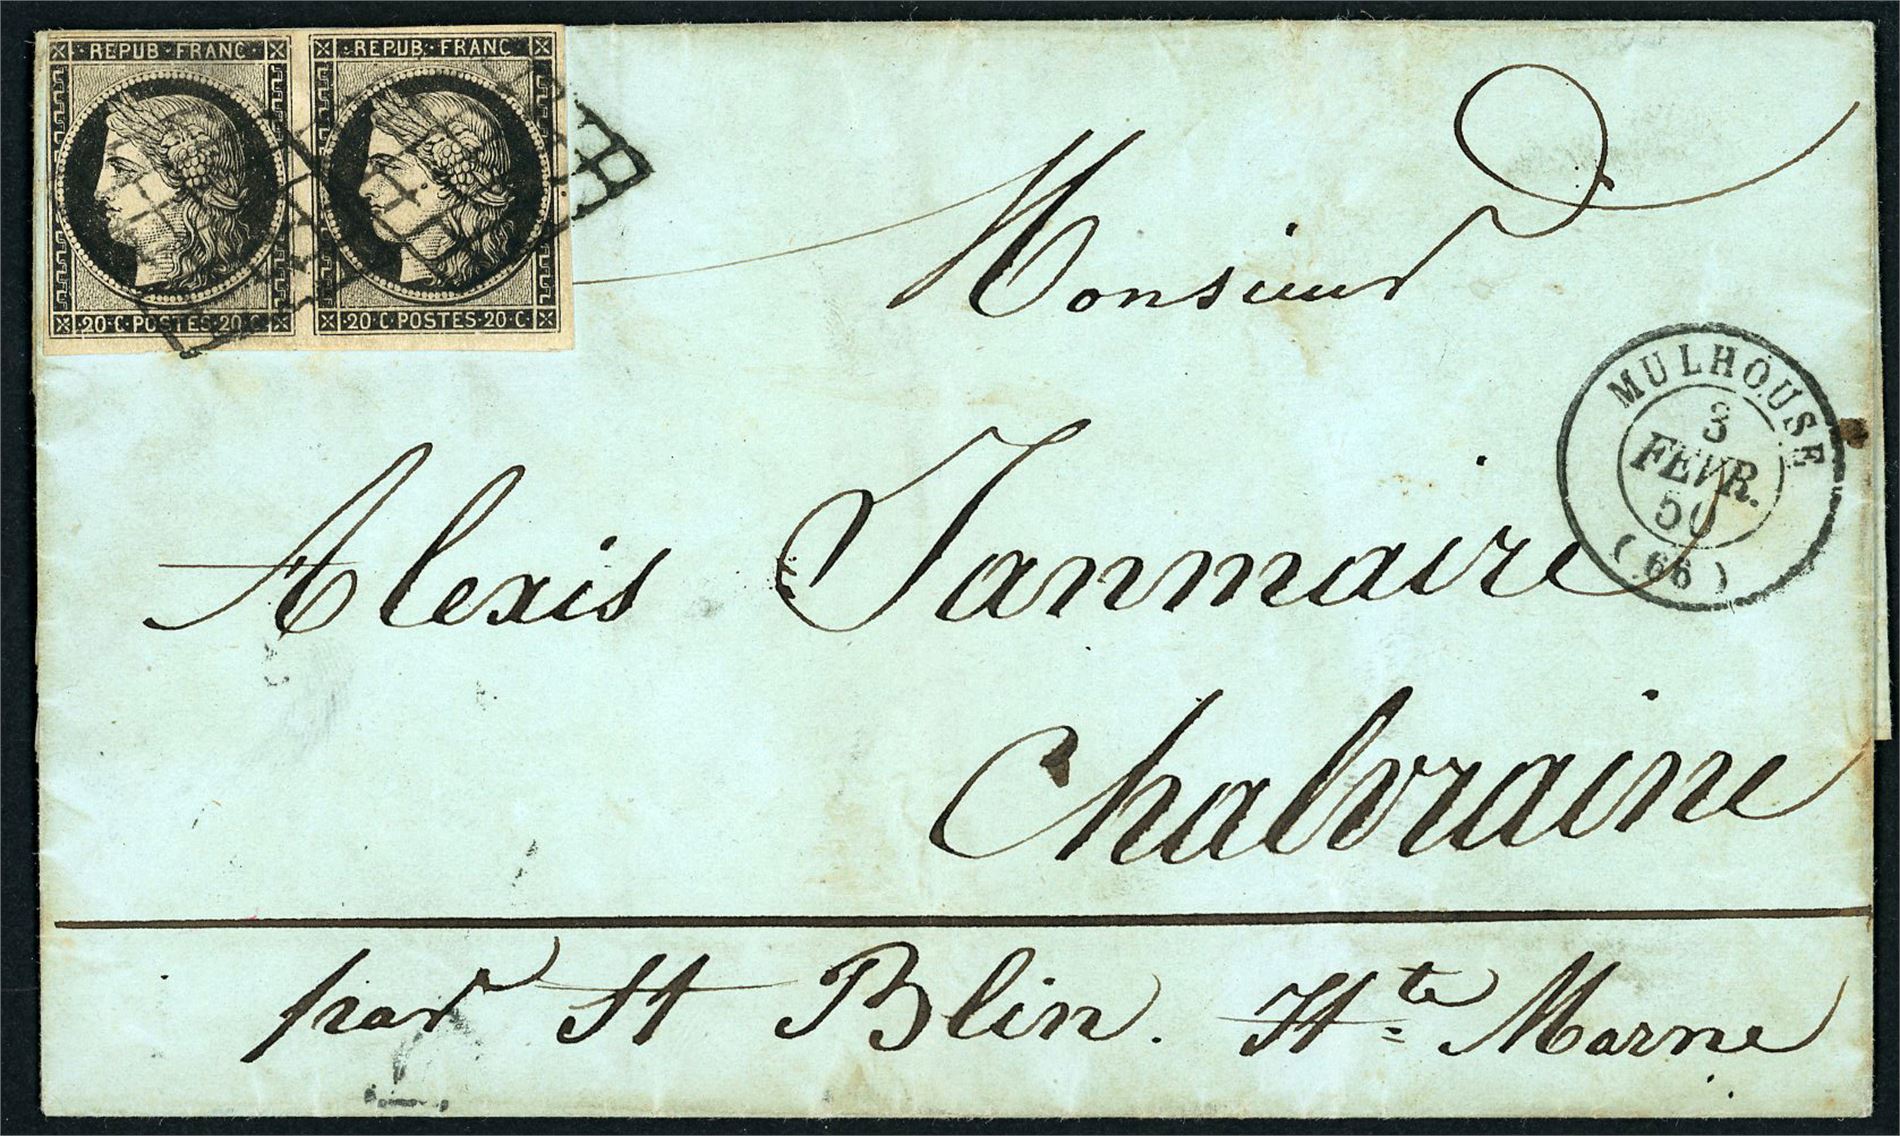 REPUB·FRANC
REPUB·FRANC
20·C·POSTES·20·C·
20·C·POSTES·20·C·
Monsieur
MULHOUSE
3
FEVR.
50
(66)
Alexis Janmaire
Chalvraine
par St Blin. Hte Marne